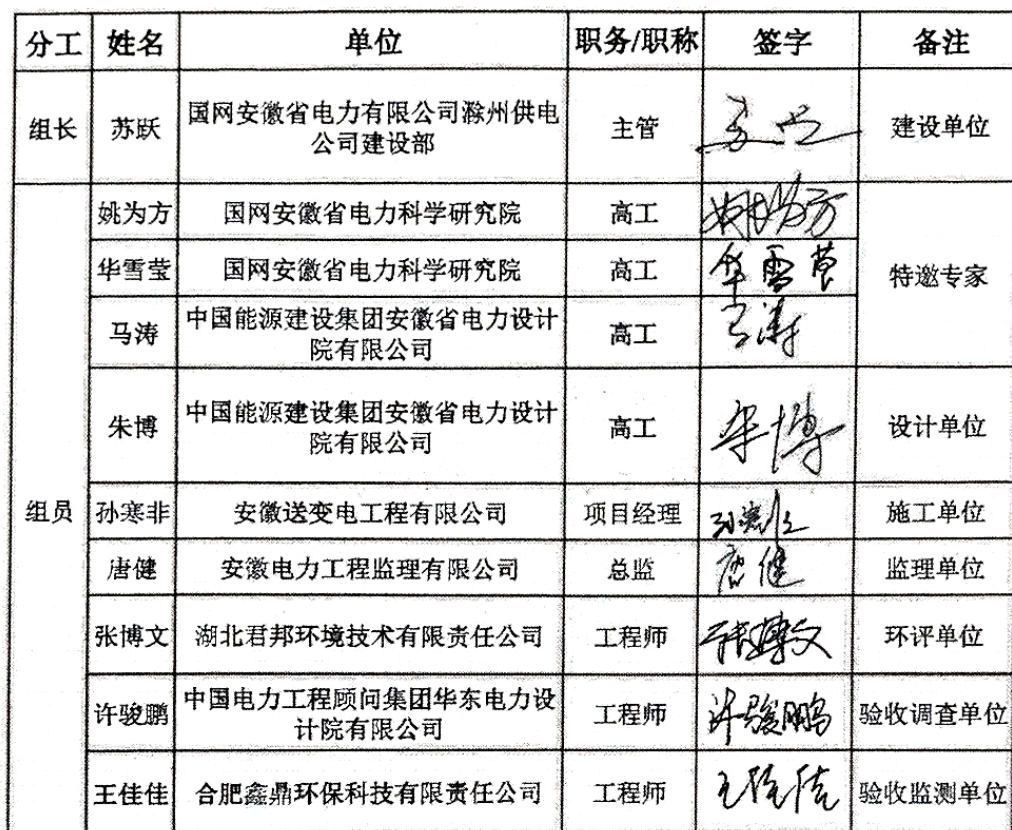 分工 姓名 单位 职务/职称 签字 备注
组长 苏跃 国网安徽省电力有限公司滁州供电 主管 建设单位
公司建设部
姚为方 国网安徽省电力科学研究院 高工 姚为方
华雪莹 国网安徽省电力科学研究院 高工 华雪莹 特邀专家
马涛 中国能源建设集团安徽省电力设计 高工 马涛
院有限公司
朱博 中国能源建设集团安徽省电力设计 高工 朱博 设计单位
院有限公司
组员 孙寒非 安徽送变电工程有限公司 项目经理 施工单位
唐健 安徽电力工程监理有限公司 总监 唐健 监理单位
张博文 湖北君邦环境技术有限责任公司 工程师 张博文 环评单位
许骏鹏 中国电力工程顾问集团华东电力设 工程师 许骏鹏 验收调查单位
计院有限公司
王佳佳 合肥鑫鼎环保科技有限责任公司 工程师 王佳佳 验收监测单位